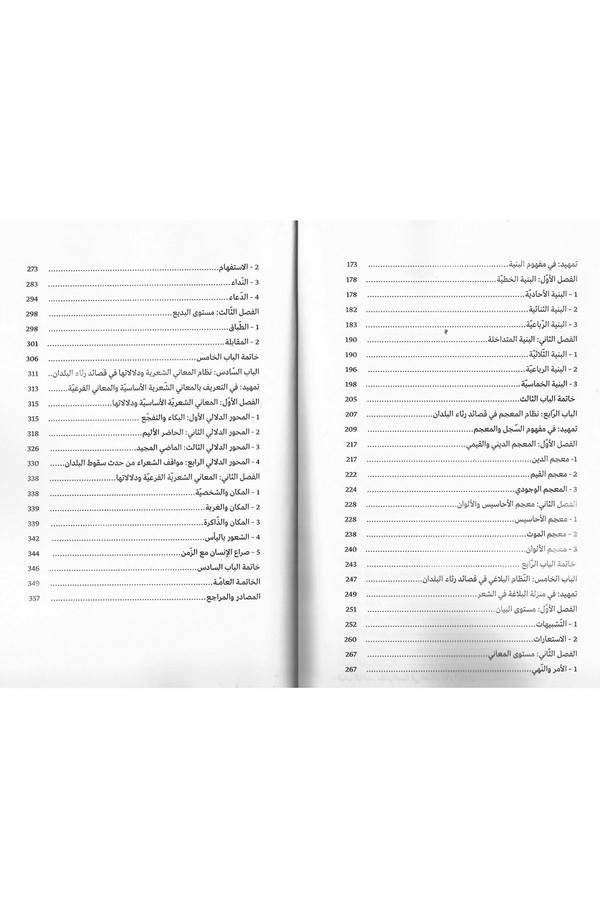 تمهيد: في مفهوم البنية 173
الفصل الأوّل: البنية الخطيّة 178
1 - البنية الأحاديّة 178
2 - البنية الثنائية 182
3 - البنية الرّباعيّة 183
الفصل الثاني: البنية المتداخلة 190
1 - البنية الثّلاثيّة 190
2 - البنية الرباعيّة 196
3 - البنية الخماسيّة 198
خاتمة الباب الثالث 205
الباب الرّابع: نظام المعجم في قصائد رثاء البلدان 207
تمهيد: في مفهوم السّجل والمعجم 209
الفصل الأوّل: المعجم الديني والقيمي 217
1- معجم الدين 217
2 - معجم القيم 222
3 - المعجم الوجودي 224
الفصل الثاني: معجم الأحاسيس والألوان 228
1 - معجم الأحاسيس 228
2 - معجم الموت 238
3 - معجم الألوان 240
خاتمة الباب الرّابع 243
الباب الخامس: النّظام البلاغي في قصائد رثاء البلدان 247
تمهيد: في منزلة البلاغة في الشعر 249
الفصل الأوّل: مستوى البيان 251
1 - التّشبيهات 252
2 - الاستعارات 260
الفصل الثّاني: مستوى المعاني 267
1 - الأمر والنّهي 267
2 - الاستفهام 273
3 - النّداء 283
4 - الدّعاء 294
الفصل الثّالث: مستوى البديع 298
1 - الطّباق 298
2 - المقابلة 301
خاتمة الباب الخامس 306
الباب السّادس: نظام المعاني الشعرية ودلالاتها في قصائد رثاء البلدان 311
تمهيد: في التعريف بالمعاني الشّعرية الأساسيّة والمعاني الفرعيّة 313
الفصل الأوّل: المعاني الشعريّة الأساسيّة ودلالاتها 315
1 - المحور الدلالي الأول: البكاء والتفجّع 315
2 - المحور الدلالي الثاني: الحاضر الأليم 318
3 - المحور الدلالي الثالث: الماضي المجيد 326
4 - المحور الدلالي الرابع: مواقف الشعراء من حدث سقوط البلدان 330
الفصل الثاني: المعاني الشعريّة الفرعيّة ودلالاتها 338
1 - المكان والشخصيّة 338
2 - المكان والغربة 339
3 - المكان والذّاكرة 339
4 - الشعور باليأس 342
5 - صراع الإنسان مع الزّمن 344
خاتمة الباب السادس 346
الخاتمة العامّة 349
المصادر والمراجع 357